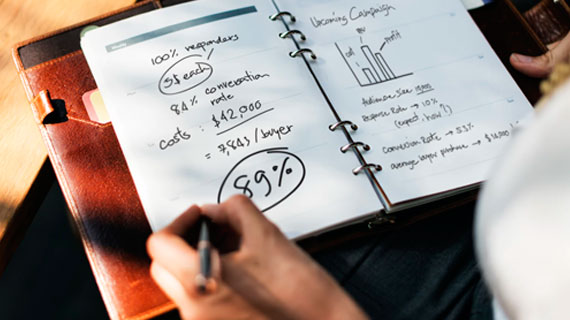 Weekly
100% responders
$5 each
84% conversation
rate
costs : $42,000
= 7,843/buyer
89%
Upcoming Campaign
profit
Audience size
Response Rate → 10%
(expect. how?)
Conversion Rate → 53%
average buyer produce →